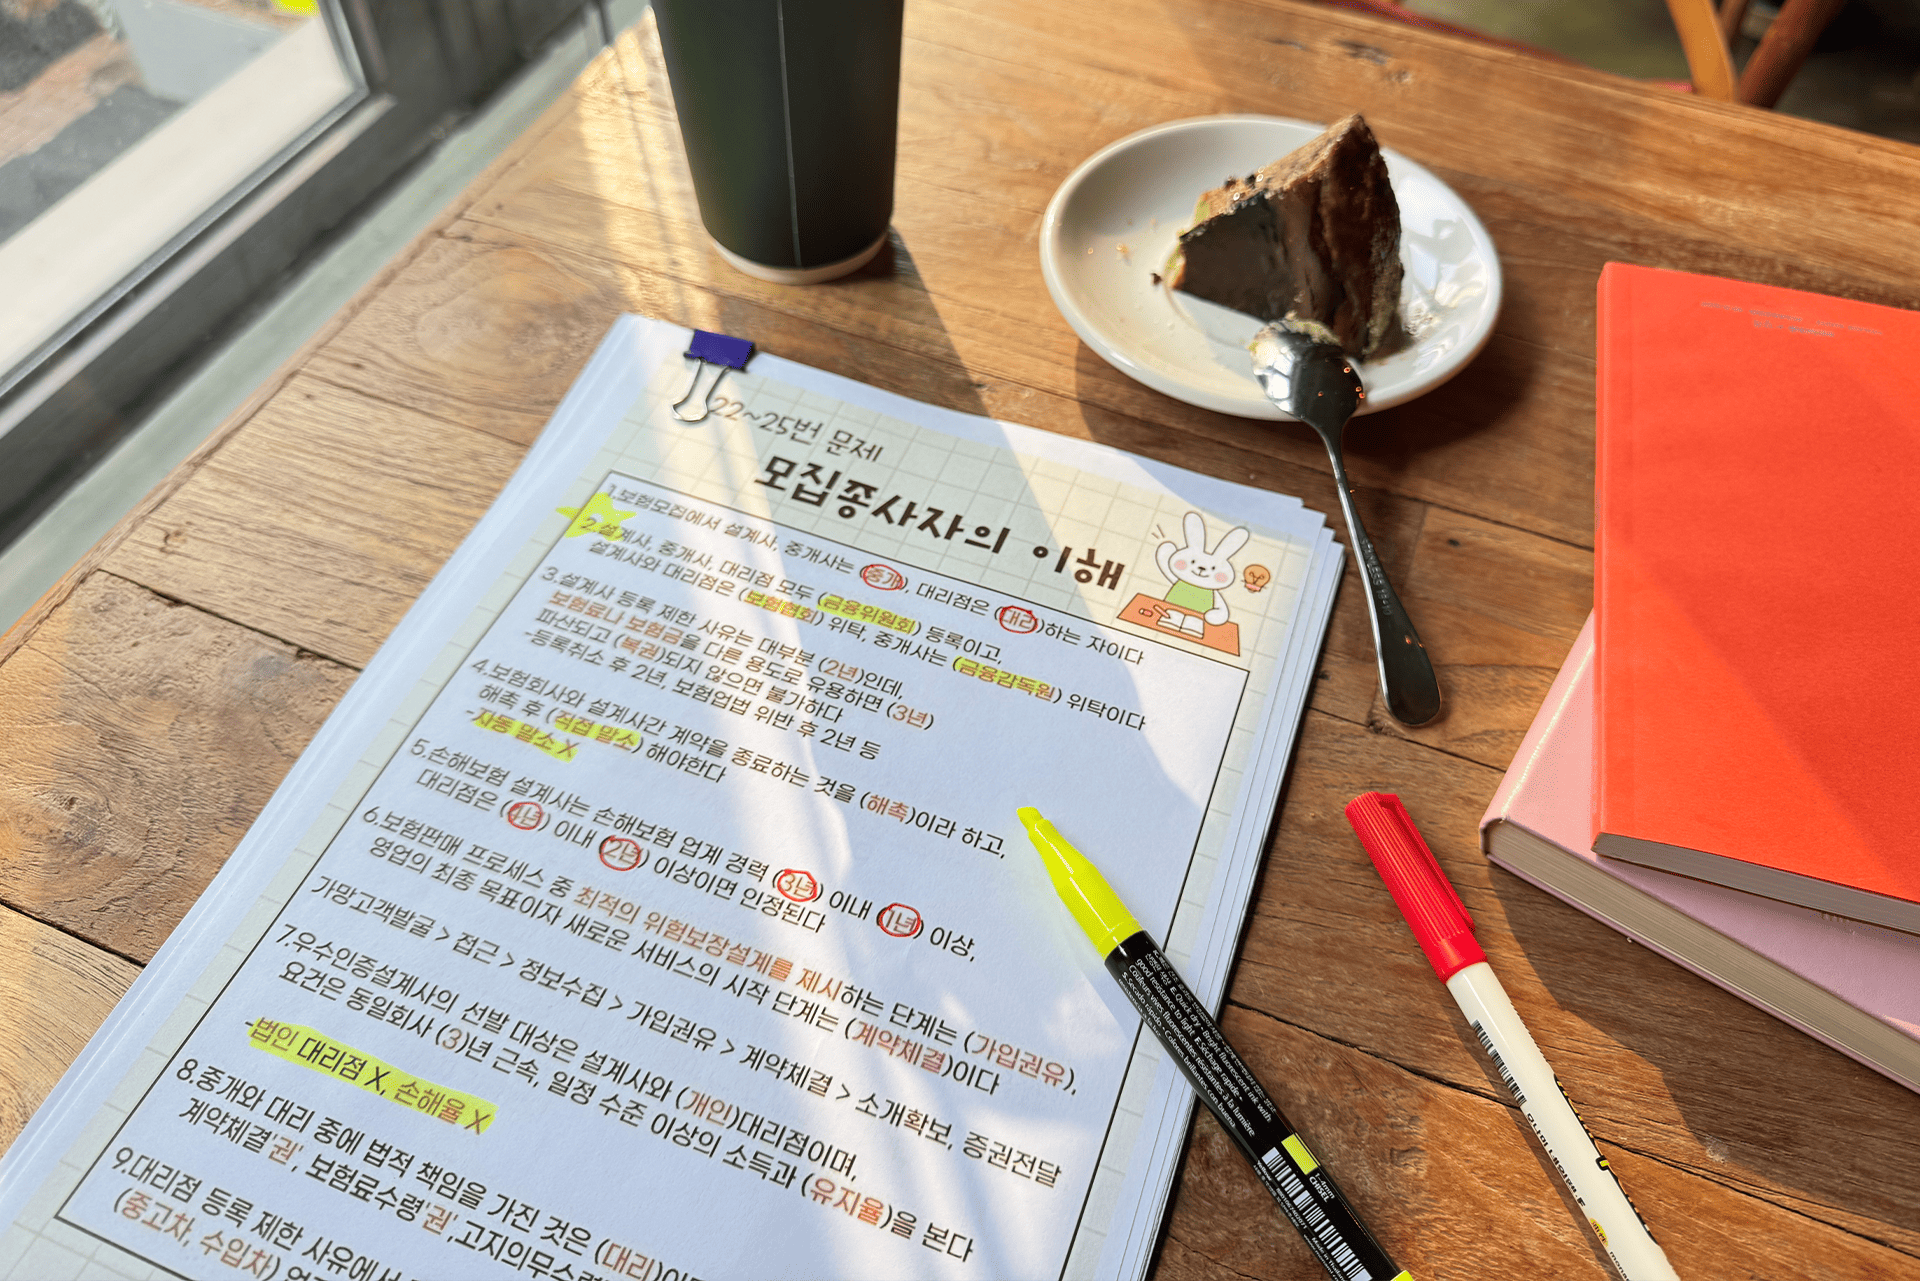 22~25번 문제
모집종사자의 이해
1.보험모집에서 설계사, 중개사는 (중개), 대리점은 (대리)하는 자이다
2.설계사, 중개사, 대리점 모두 (금융위원회) 등록이고,
설계사와 대리점은 (보험협회) 위탁, 중개사는 (금융감독원) 위탁이다
3.설계사 등록 제한 사유는 대부분 (2년)인데,
보험료나 보험금을 다른 용도로 유용하면 (3년)
파산되고 (복권)되지 않으면 불가하다
-등록취소 후 2년, 보험업법 위반 후 2년 등
4.보험회사와 설계사간 계약을 종료하는 것을 (해촉)이라 하고,
해촉 후 (직접 말소) 해야한다
-자동 말소 X
5.손해보험 설계사는 손해보험 업계 경력 (3년) 이내 (1년) 이상,
대리점은 (4년) 이내 (2년) 이상이면 인정된다
6.보험판매 프로세스 중 최적의 위험보장설계를 제시하는 단계는 (가입권유),
영업의 최종 목표이자 새로운 서비스의 시작 단계는 (계약체결)이다
가망고객발굴 > 접근 > 정보수집 > 가입권유 > 계약체결 > 소개확보, 증권전달
7.우수인증설계사의 선발 대상은 설계사와 (개인)대리점이며,
요건은 동일회사 (3)년 근속, 일정 수준 이상의 소득과 (유지율)을 본다
-법인 대리점 X, 손해율 X
8.중개와 대리 중에 법적 책임을 가진 것은 (대리)이
계약체결'권', 보험료수령'권',고지의무수령
9.대리점 등록 제한 사유에서
(중고차, 수입차)
good resistance to light
1-4mm
CHISEL